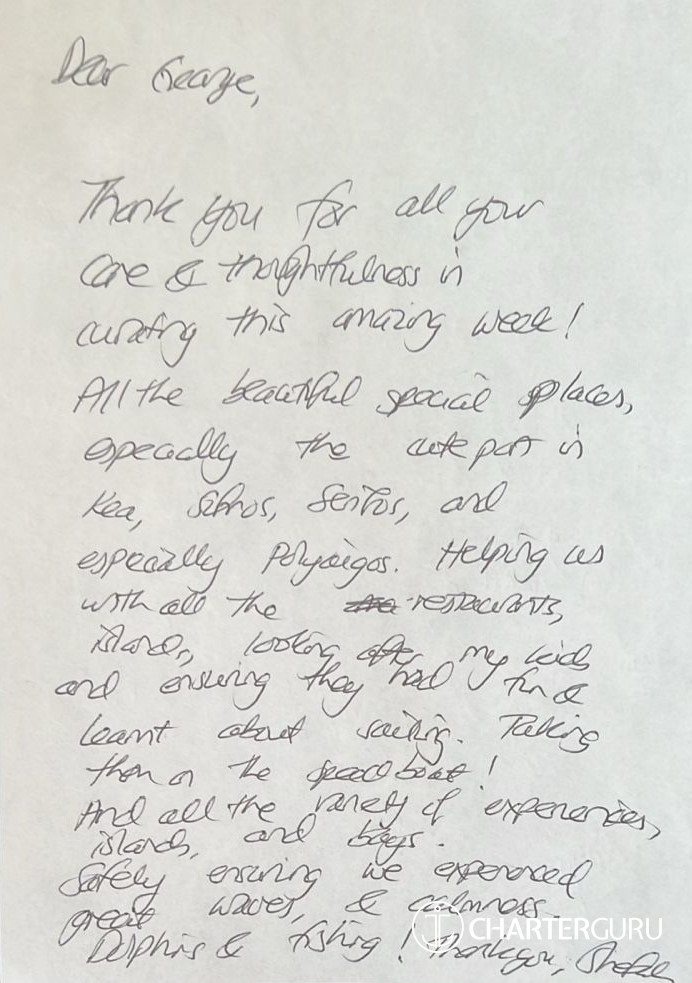 Dear George,
Thank you for all your
care & thoughtfulness in
curating this amazing week!
All the beautiful special places,
especially the cute port in
Kea, Sifnos, Serifos, and
especially Polyaigos. Helping us
with all the restaurants,
islands, looking after my kids
and ensuring they had fun &
learnt about sailing. Taking
them on the speed boat!
And all the variety of experiences,
islands, and bays.
Safely ensuring we experienced
great waves, & calmness.
Dolphins & fishing! Thank you,
CHARTERGURU